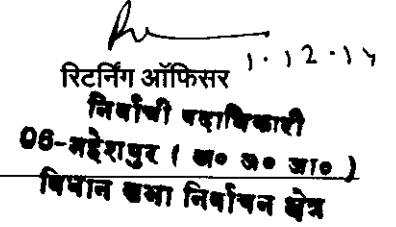 1.12.14
रिटर्निंग ऑफिसर
निर्वाची पदाधिकारी
06-महेशपुर ( अ० ज० जा० )
विधान सभा निर्वाचन क्षेत्र